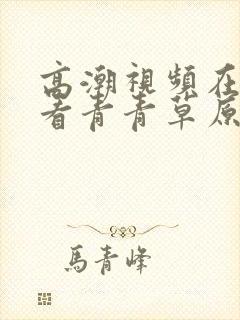 高潮視頻在
看青青草原
馬青峰